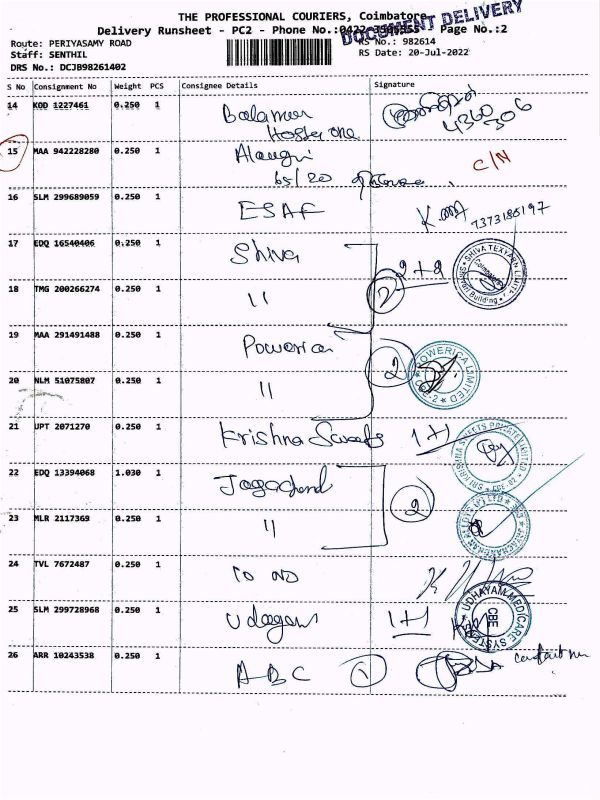 THE PROFESSIONAL COURIERS, Coimbatore
Delivery Runsheet - PC2 - Phone No.:0422 Page No.:2
DOCUMENT DELIVERY
Route: PERIYASAMY ROAD RS No.: 982614
Staff: SENTHIL RS Date: 20-Jul-2022
DRS No.: DCJB98261402
S No Consignment No Weight PCS Consignee Details Signature
14 KDD 1227461 0.250 1 4360
306
15 MAA 942228280 0.250 1 C/N
65/20
16 SLM 299689059 0.250 1 ESAF
17 EDQ 16540406 0.250 1 Shiva 2+2 SHIVA TEXYARN LIMITED
18 TMG 200266274 0.250 1 11 2
19 MAA 291491488 0.250 1 Powerica 2 POWERICA LIMITED
CBE-2
20 NLM 51075807 0.250 1 11
21 UPT 2071270 0.250 1 Krishna Sweets 1+1 SRI KRISHNA SWEETS PRIVATE LIMITED
22 EDQ 13394068 1.030 1 2
23 MLR 2117369 0.250 1 11
24 TVL 7672487 0.250 1
25 SLM 299728968 0.250 1 1+1 UDHAYAM MEDICARE SYSTEMS
CBE
26 ARR 10243538 0.250 1 ABC 1